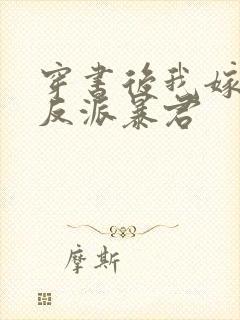 穿书后我嫁
反派暴君
摩斯